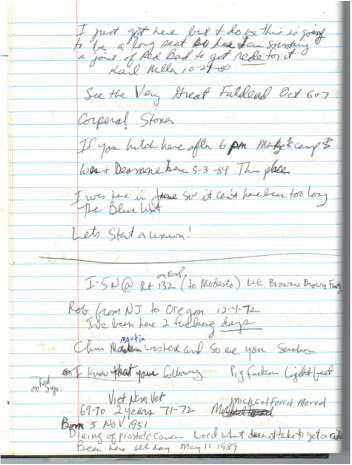 I just got here but I do see this is going
to be a long seat so here I am smoking
a joint of Red Bud to get rede for it
Karl Miller 10-27-80
See the Very Great Fuldead Oct 6+7
Corperal Stoner
If you hitch here after 6 pm Maybe camp
Wes + Deannne here 5-3-84 This place
I was here in June so it can't have been too long
The Blue List
Lets Start a union!
on Ramp
I-5 N @ Rt 132 (to Modesto) W.E. Brownie Brown
Rob from NJ to Oregon 12-4-72
I've been here 2 fucking days
Martin
Chris was here and So are you
I Know that your following Pig Fuckin Lightfoot
on Sign
Viet Nam Vet
69-70 2 years 71-72
Born 5 NOV 1951
Dieing of prostate Cancer Lord what does it take to get a ride
Been here all day May 11 1989